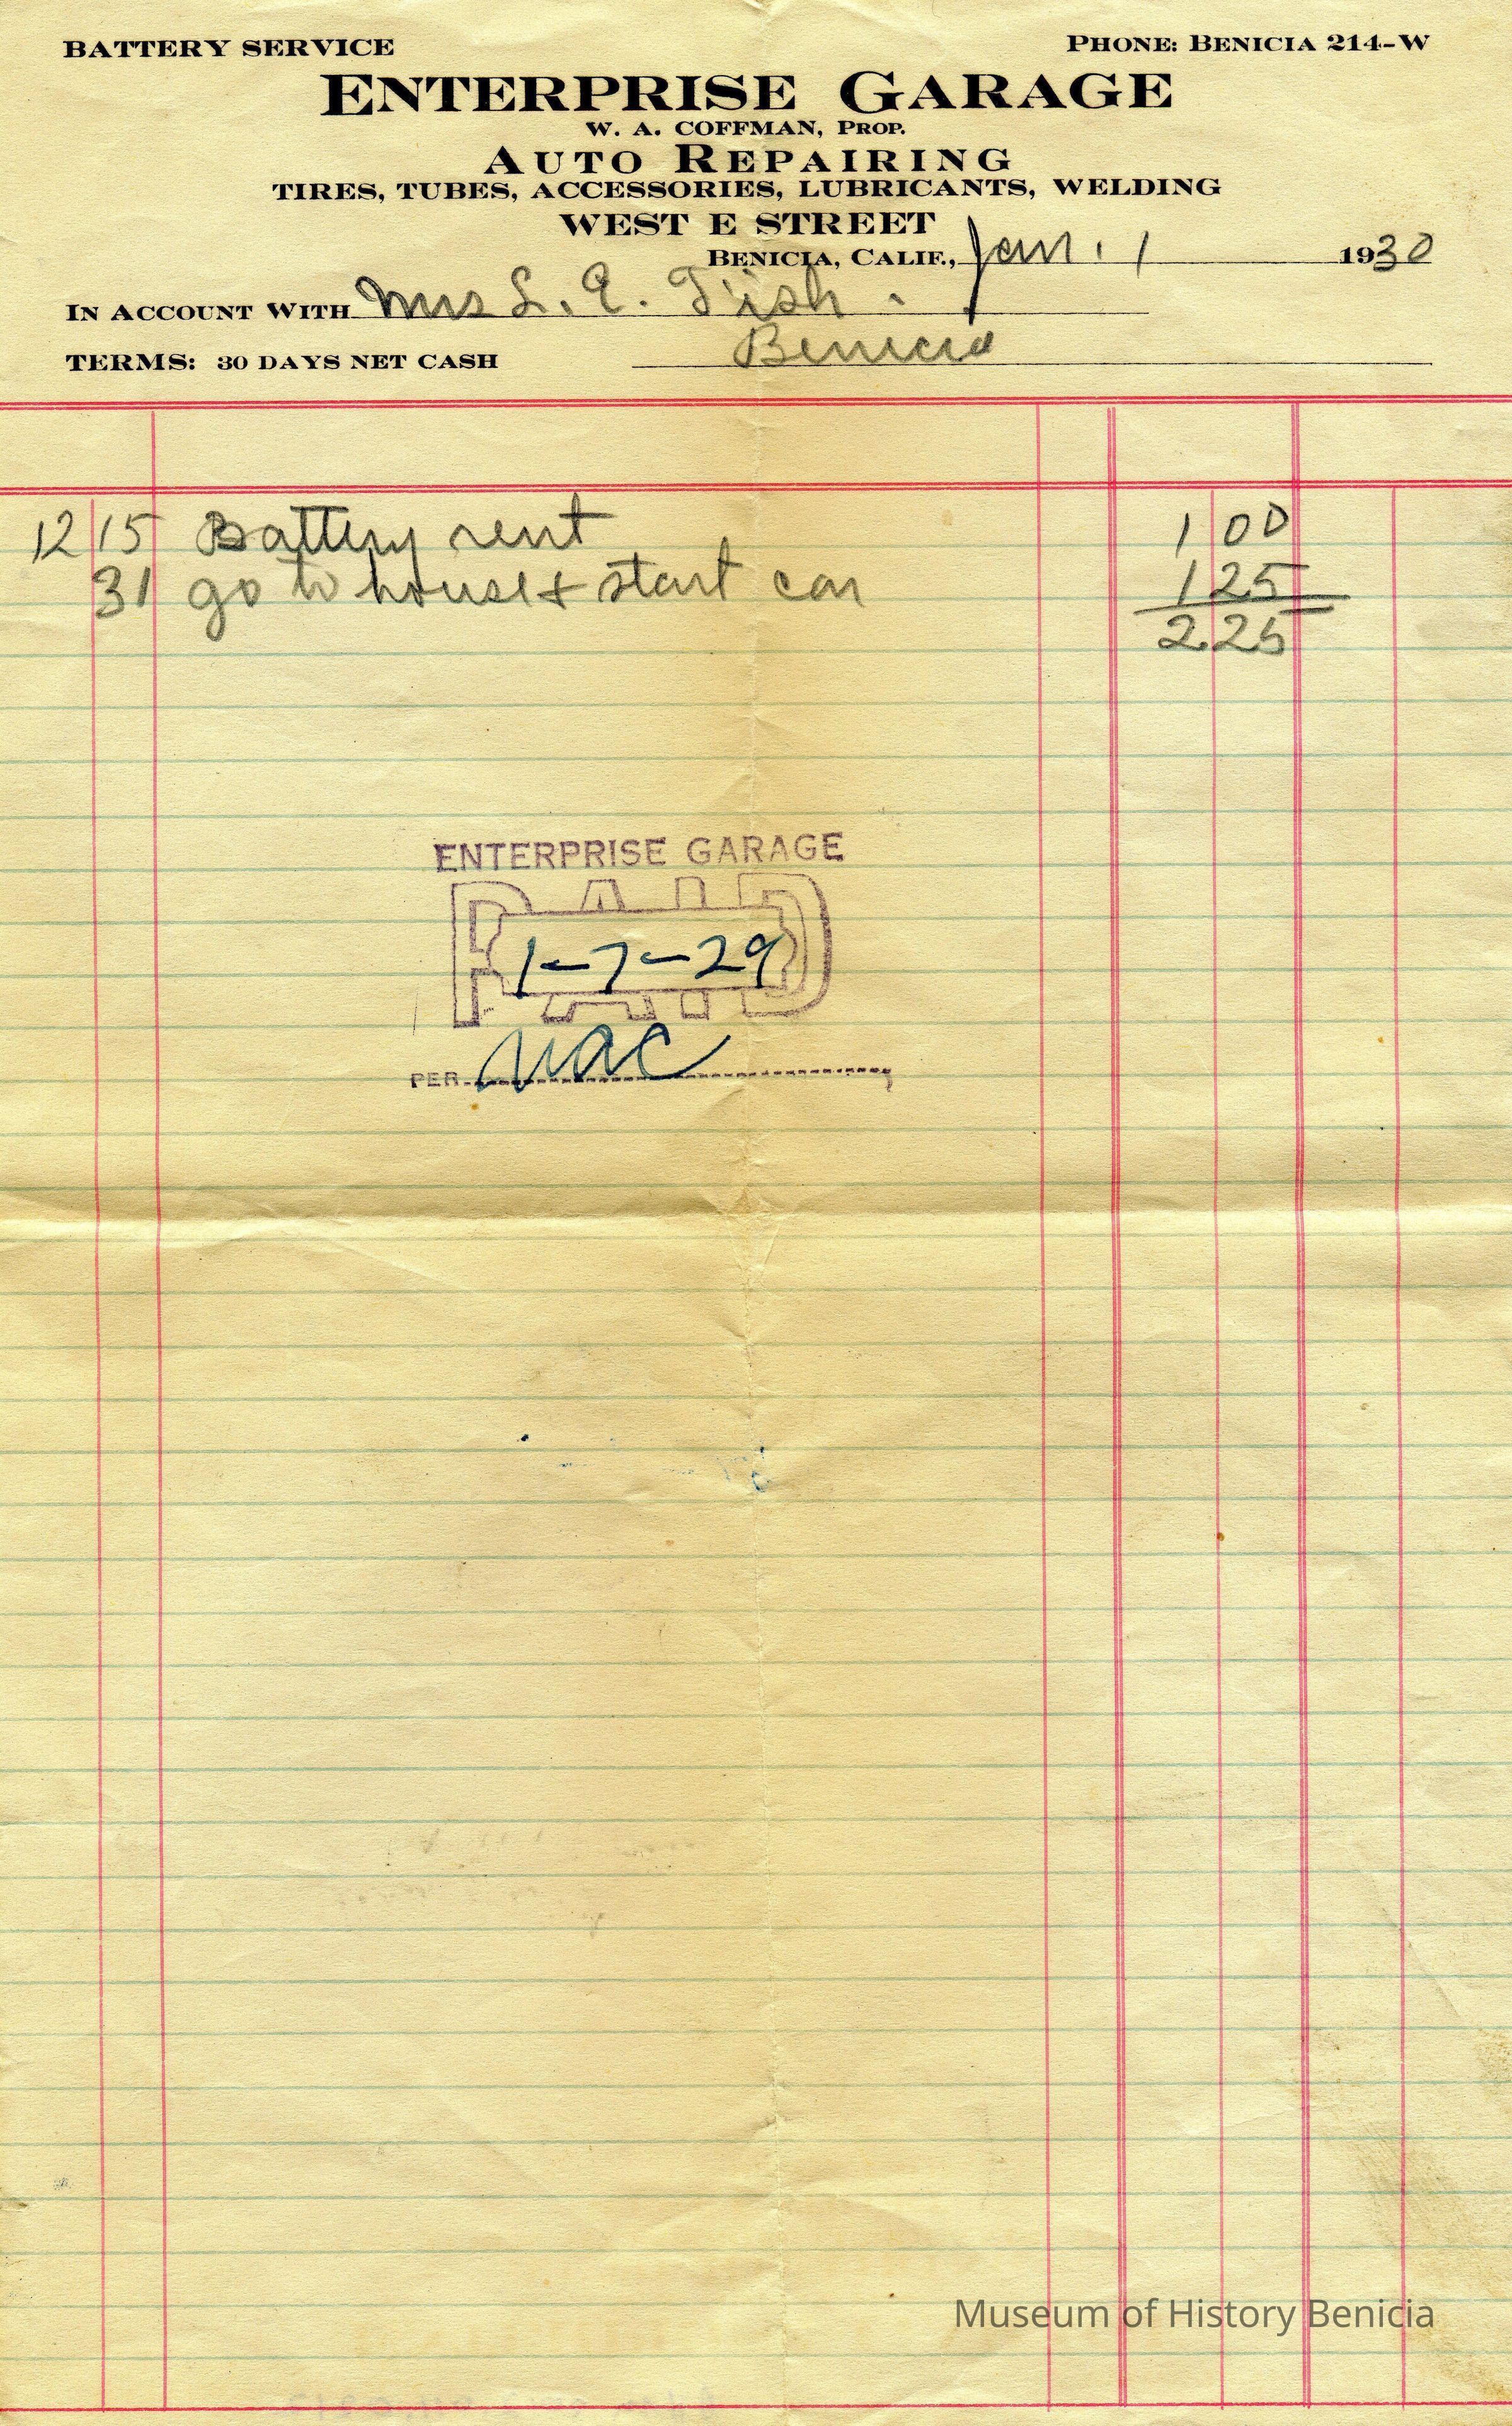 BATTERY SERVICE PHONE: BENICIA 214-W
ENTERPRISE GARAGE
W. A. COFFMAN, PROP.
AUTO REPAIRING
TIRES, TUBES, ACCESSORIES, LUBRICANTS, WELDING
WEST E STREET
BENICIA, CALIF., Jan. 1 1930
IN ACCOUNT WITH Mrs L. E. Fish.
TERMS: 30 DAYS NET CASH Benicia
12 15 Battery rent 1 00
31 go to house & start car 1 25
2.25
ENTERPRISE GARAGE
PAID
1-7-29
PER WAC
Museum of History Benicia